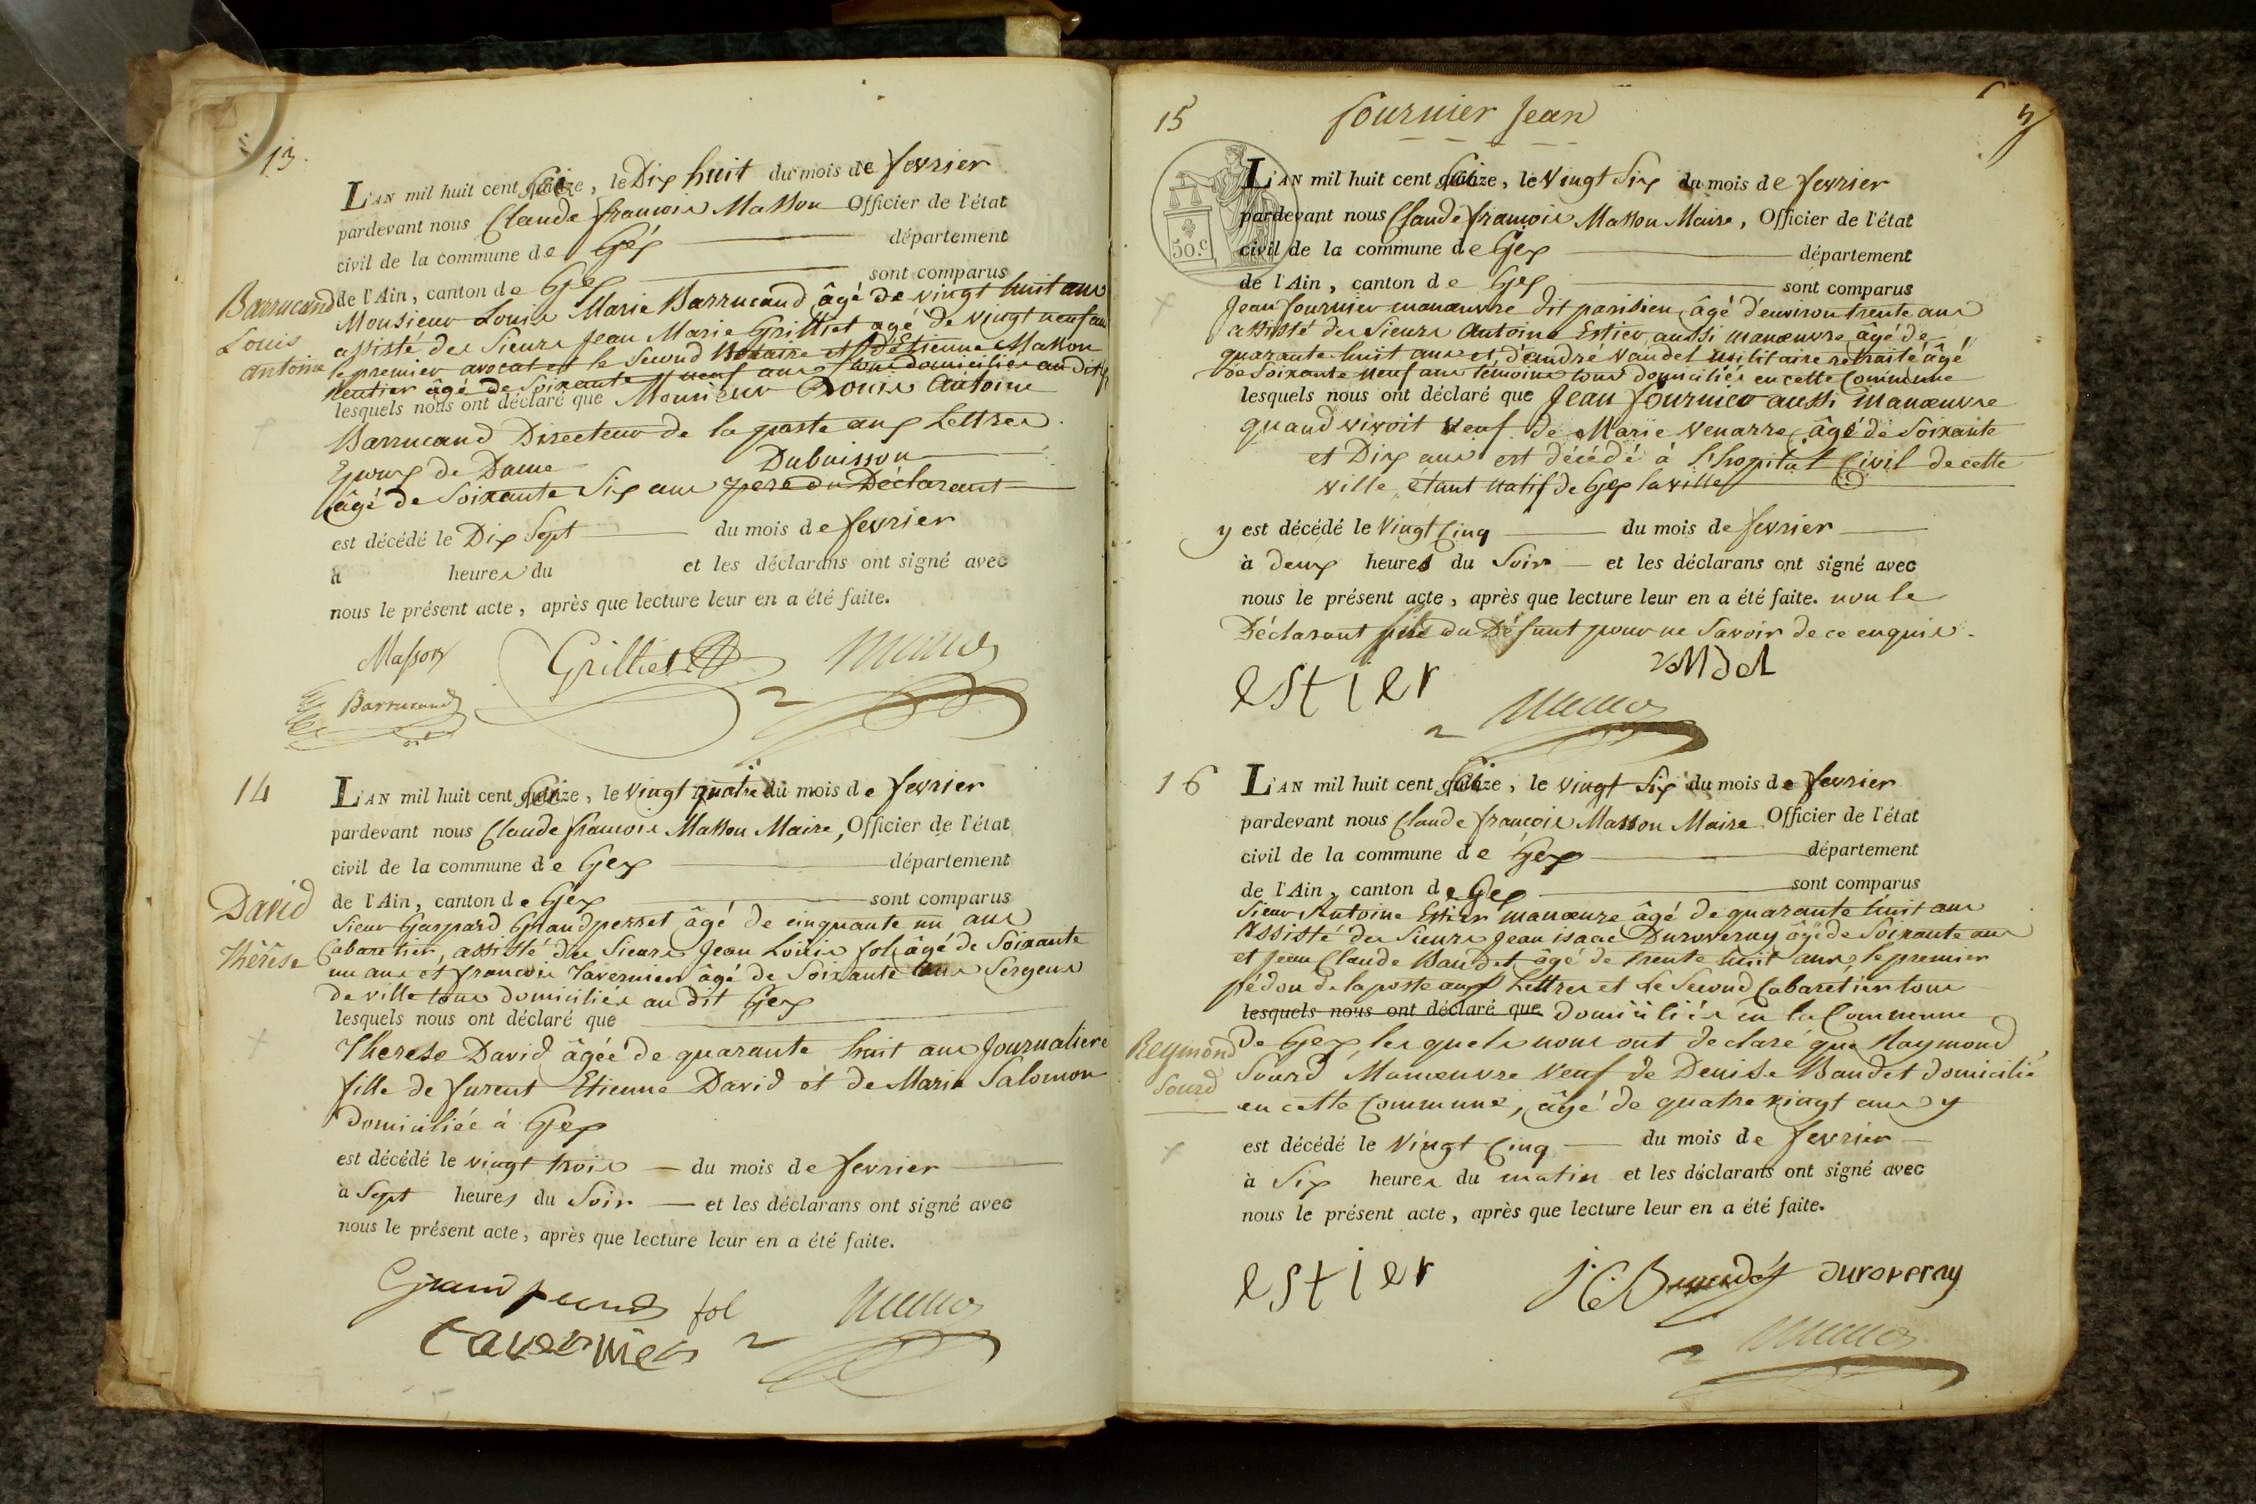 13.
L'AN mil huit cent Seize, le Dix huit du mois de fevrier
pardevant nous Claude francois Masson Officier de l'état
civil de la commune de Gex département
de l'Ain, canton de Gex sont comparus
Barrucand
Louis
antoine
Monsieur Louis Marie Barrucand âgé de vingt huit ans
assisté des Sieurs Jean Marie Grilliet agé de vingt neuf ans
le premier avocat et le Second Notaire et d'Etienne Masson
Rentier âgé de Soixante neuf ans tous domiciliés au dit Gex
lesquels nous ont déclaré que Monsieur Louis Antoine
Barrucand Directeur de la poste aux Lettres
Epoux de Dame Dubuisson
âgé de Soixante Six ans pere du Déclarant
est décédé le Dix Sept du mois de fevrier
à heures du et les déclarans ont signé avec
nous le présent acte, après que lecture leur en a été faite.
Masson Grilliet
Barrucand
14
L'AN mil huit cent Seize, le vingt quatre du mois de fevrier
pardevant nous Claude francois Masson Maire, Officier de l'état
civil de la commune de Gex département
de l'Ain, canton de Gex sont comparus
David
Thérèse
Sieur Gaspard Grandperret âgé de cinquante un ans
Cabaretier, assisté des Sieurs Jean Louis fol âgé de Soixante
un ans et francois Tavernier âgé de Soixante ans Sergens
de ville tous domiciliés au dit Gex
lesquels nous ont déclaré que
Therese David âgée de quarante huit ans Journaliere
fille de furent Etienne David et de Marie Salomon
Domiciliée à Gex
est décédé le vingt trois du mois de fevrier
à Sept heures du Soir et les déclarans ont signé avec
nous le présent acte, après que lecture leur en a été faite.
fol
tavernier
15 fournier Jean
50.c
L'AN mil huit cent Seize, le Vingt Six du mois de fevrier
pardevant nous Claude francois Masson Maire, Officier de l'état
civil de la commune de Gex département
de l'Ain, canton de Gex sont comparus
Jean fournier manœuvre dit parisien, âgé d'environ trente ans
assisté des Sieurs Antoine Estier aussi manœuvre âgé de
quarante huit ans et d'andré Vandel militaire retraité âgé
de Soixante neuf ans témoins tous domiciliés en cette Commune
lesquels nous ont déclaré que Jean fournier aussi manœuvre
quand vivoit veuf de Marie Venarre, âgé de Soixante
et Dix ans est décédé à l'hopital Civil de cette
ville, étant natif de Gex la ville
y est décédé le Vingt Cinq du mois de fevrier
à deux heures du Soir et les déclarans ont signé avec
nous le présent acte, après que lecture leur en a été faite. non le
Déclarant fils du Défunt pour ne Savoir de ce enquis.
estier vandel
16
L'AN mil huit cent Seize, le vingt Six du mois de fevrier
pardevant nous Claude françois Masson Maire Officier de l'état
civil de la commune de Gex département
de l'Ain, canton de Gex sont comparus
Sieur Antoine Estier manœuvre âgé de quarante huit ans
Assisté des Sieurs Jean isaac Duroveray âgé de Soixante ans
et Jean Claude Baudet âgé de trente huit ans, le premier
pédon de la poste aux Lettres et Le Second Cabaretier tous
lesquels nous ont déclaré que domiciliés en la Commune
Reymond
Sourd
de Gex, lesquels nous ont declaré que Raymond
Sourd Manœuvre Veuf de Denise Baudet domicilié
en cette Commune, âgé de quatre vingt ans y
est décédé le Vingt Cinq du mois de fevrier
à Six heures du matin et les déclarans ont signé avec
nous le présent acte, après que lecture leur en a été faite.
estier J. C. Baudet duroveray